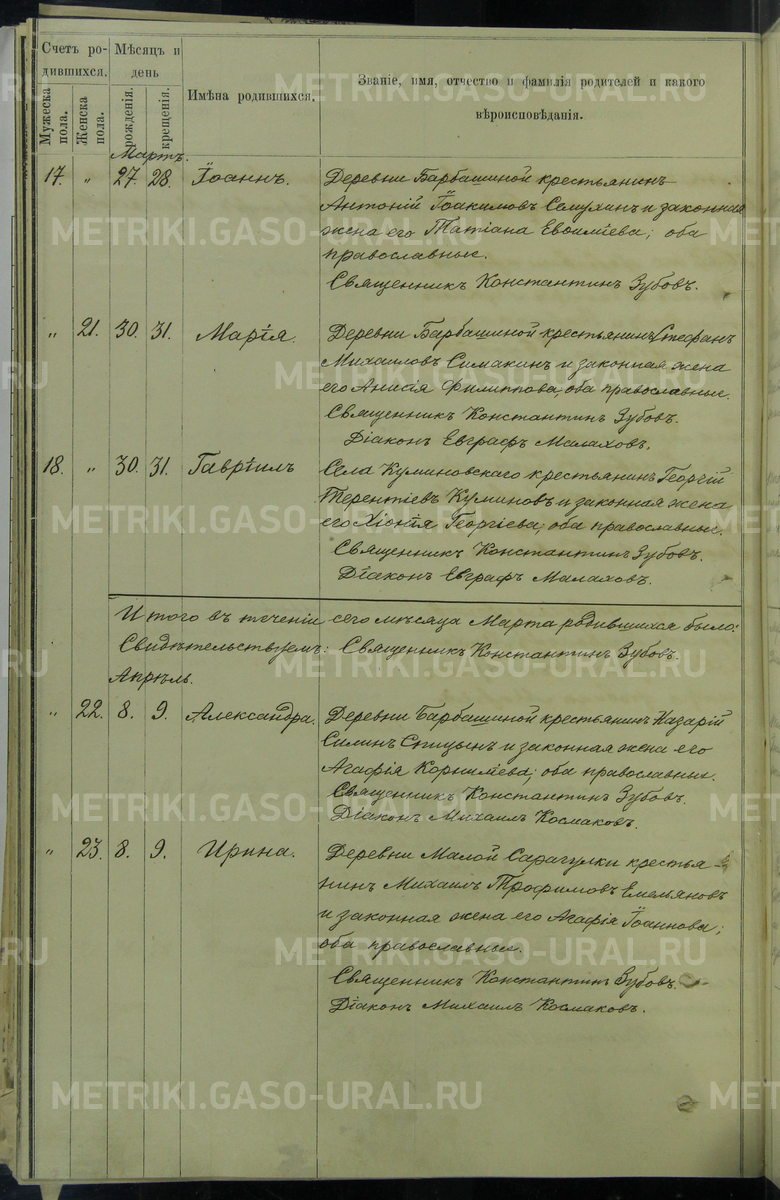 Счетъ ро-
дившихся.
Мѣсяцъ и
день
Имѣна родившихся.
Званіе, имя, отчество и фамилія родителей и какого
вѣроисповѣданія.
Мужеска
пола.
Женска
пола.
рожденія.
крещенія.
Мартъ.
17. „ 27. 28. Іоаннъ. Деревни Барбашиной крестьянинъ
Антоній Іоакимовъ Семухинъ и законная
жена его Татіана Евѳиміева; оба
православные.
Священникъ Константинъ Зубовъ.
„ 21. 30. 31. Марія. Деревни Барбашиной крестьянинъ Стефанъ
Михаиловъ Симакинъ и законная жена
его Анисія Филиппова, оба православные.
Священникъ Константинъ Зубовъ.
Діаконъ Евграфъ Малаховъ.
18. „ 30. 31. Гавріилъ Села Куминовскаго крестьянинъ Георгій
Терентіевъ Куминовъ и законная жена
его Хіонія Георгіева, оба православные.
Священникъ Константинъ Зубовъ.
Діаконъ Евграфъ Малаховъ.
Итого въ теченіи сего мѣсяца Марта родившихся было:
Свидѣтельствуемъ: Священникъ Константинъ Зубовъ.
Апрѣль.
„ 22. 8. 9. Александра. Деревни Барбашиной крестьянинъ Назарій
Силинъ Спицынъ и законная жена его
Агафія Корниліева; оба православных.
Священникъ Константинъ Зубовъ.
Діаконъ Михаилъ Космаковъ.
„ 23. 8. 9. Ирина. Деревни Малой Сарагулки крестья-
нинъ Михаилъ Трофимовъ Емельяновъ
и законная жена его Агафія Іоаннова;
оба православные.
Священникъ Константинъ Зубовъ.
Діаконъ Михаилъ Космаковъ.
METRIKI.GASO-URAL.RU